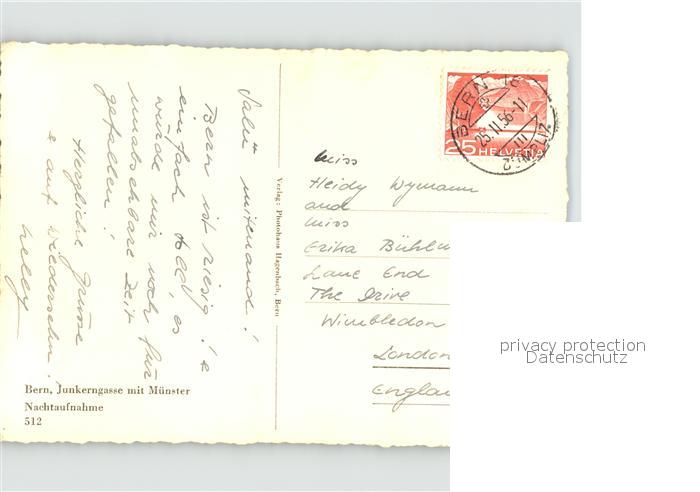 Salü mitenand!
Bern ist riesig! e
einfach tadl, es
würde mir noch für
unabsehbare Zeit
gefallen!
Herzliche Grüsse
e auf Wiedersehn!
Nelly
Verlag: Photohaus Hagenbuch, Bern
BERN
25.11.56-11
ZÜMPLIZ
25 HELVETIA
Miss
Heidy Wymann
and
Miss
Erika Bühlm
Lane End
The Drive
Wimbledon
London
Engla
Bern, Junkerngasse mit Münster
Nachtaufnahme
512
privacy protection
Datenschutz